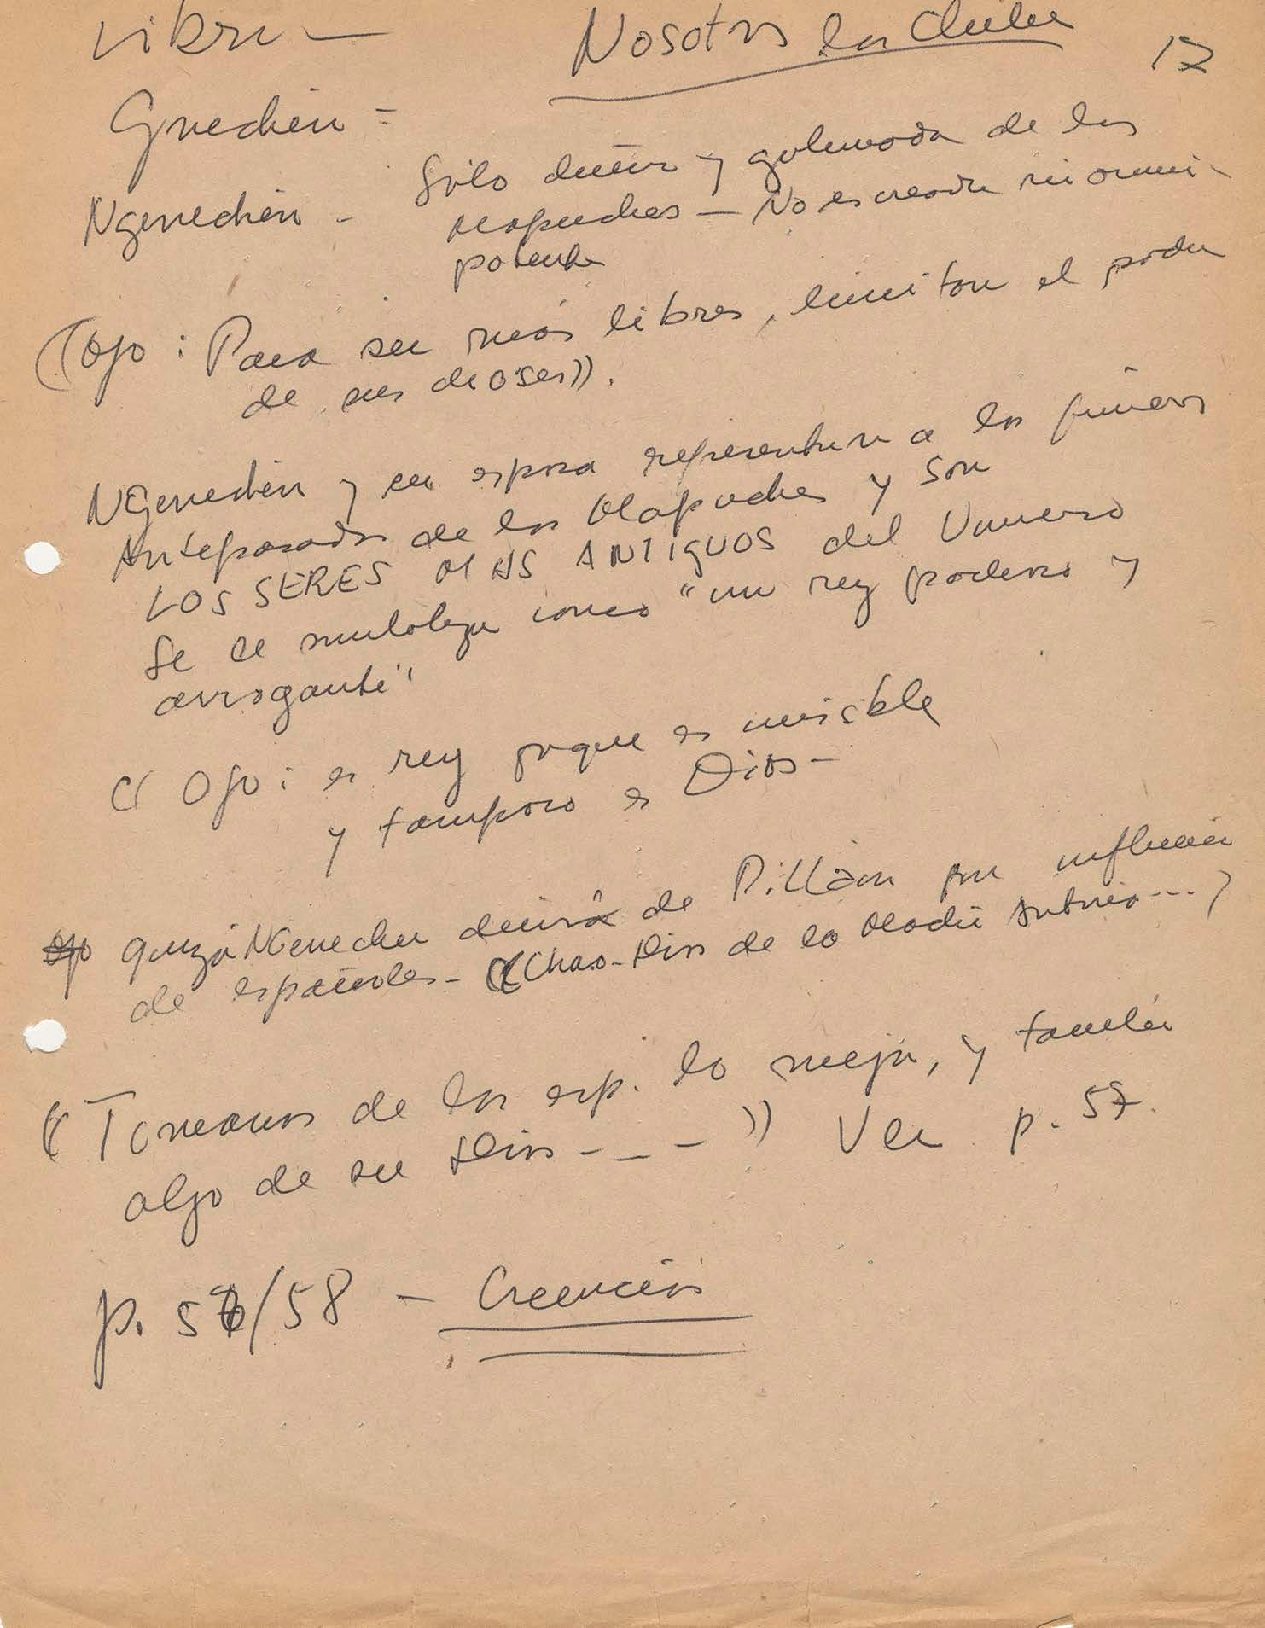 Libro — Nosotros los Chile 17
Gnechén =
Ngenechén - Sólo dueño y gobernador de los
mapuches — No es creador ni omni-
potente
(Ojo: Para ser más libres, limitan el poder
de sus dioses)).
NGenechén y su esposa representan a los primeros
Antepasados de los Mapuches y son
LOS SERES MAS ANTIGUOS del Universo
Se le
como "un rey poderoso y
arrogante"
(( Ojo: es rey porque es invisible
y tampoco es Dios -
quizá NGenechen deriva de Pillán por influencia
de españoles - ((Chao-Dios de la Madre Antonia...)
(( Tomamos de los esp. lo mejor, y también
algo de su Dios - - - )) Ver p. 57.
p. 56/58 - Creencias